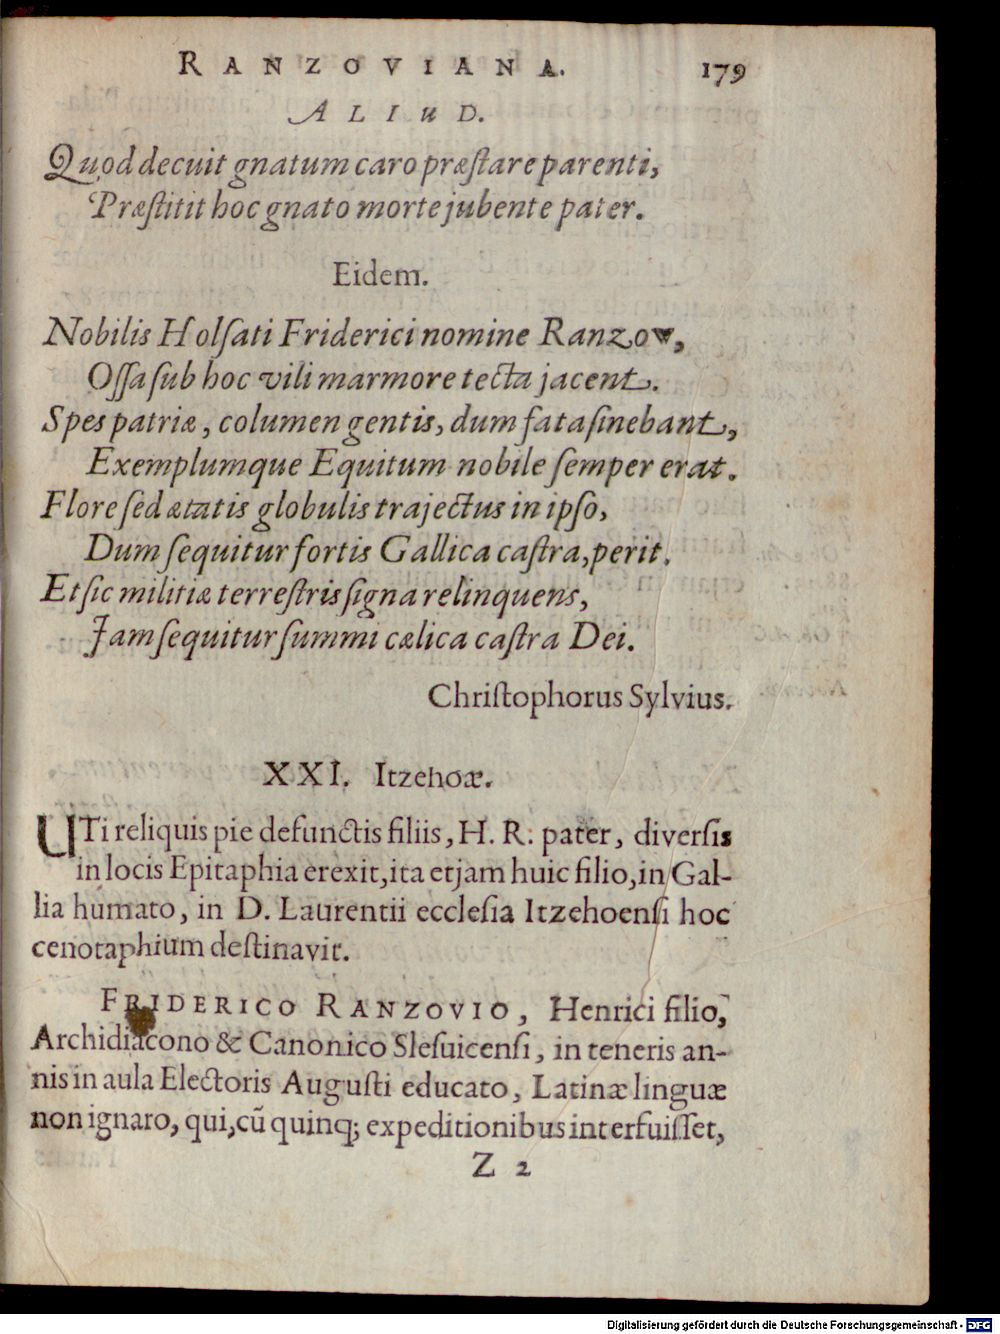 RANZOVIANA. 179
ALIUD.
Quod decuit gnatum caro præſtare parenti,
Præſtitit hoc gnato morte jubente pater.
Eidem.
Nobilis Holſati Friderici nomine Ranzow,
Oſſa ſub hoc vili marmore tecta jacent.
Spes patriæ, columen gentis, dum fata ſinebant,
Exemplumque Equitum nobile ſemper erat.
Flore ſed ætatis globulis trajectus in ipſo,
Dum ſequitur fortis Gallica caſtra, perit.
Et ſic militiæ terreſtris ſigna relinquens,
Jam ſequitur ſummi cælica caſtra Dei.
Chriſtophorus Sylvius.
XXI. Itzehoæ.
UTi reliquis pie defunctis filiis, H. R. pater, diverſis
in locis Epitaphia erexit, ita etjam huic filio, in Gal-
lia humato, in D. Laurentii eccleſia Itzehoenſi hoc
cenotaphium deſtinavit.
FRIDERICO RANZOVIO, Henrici filio,
Archidiacono & Canonico Sleſuicenſi, in teneris an-
nis in aula Electoris Auguſti educato, Latinæ linguæ
non ignaro, qui, cũ quinq; expeditionibus interfuiſſet,
Z 2
Digitalisierung gefördert durch die Deutsche Forschungsgemeinschaft - DFG